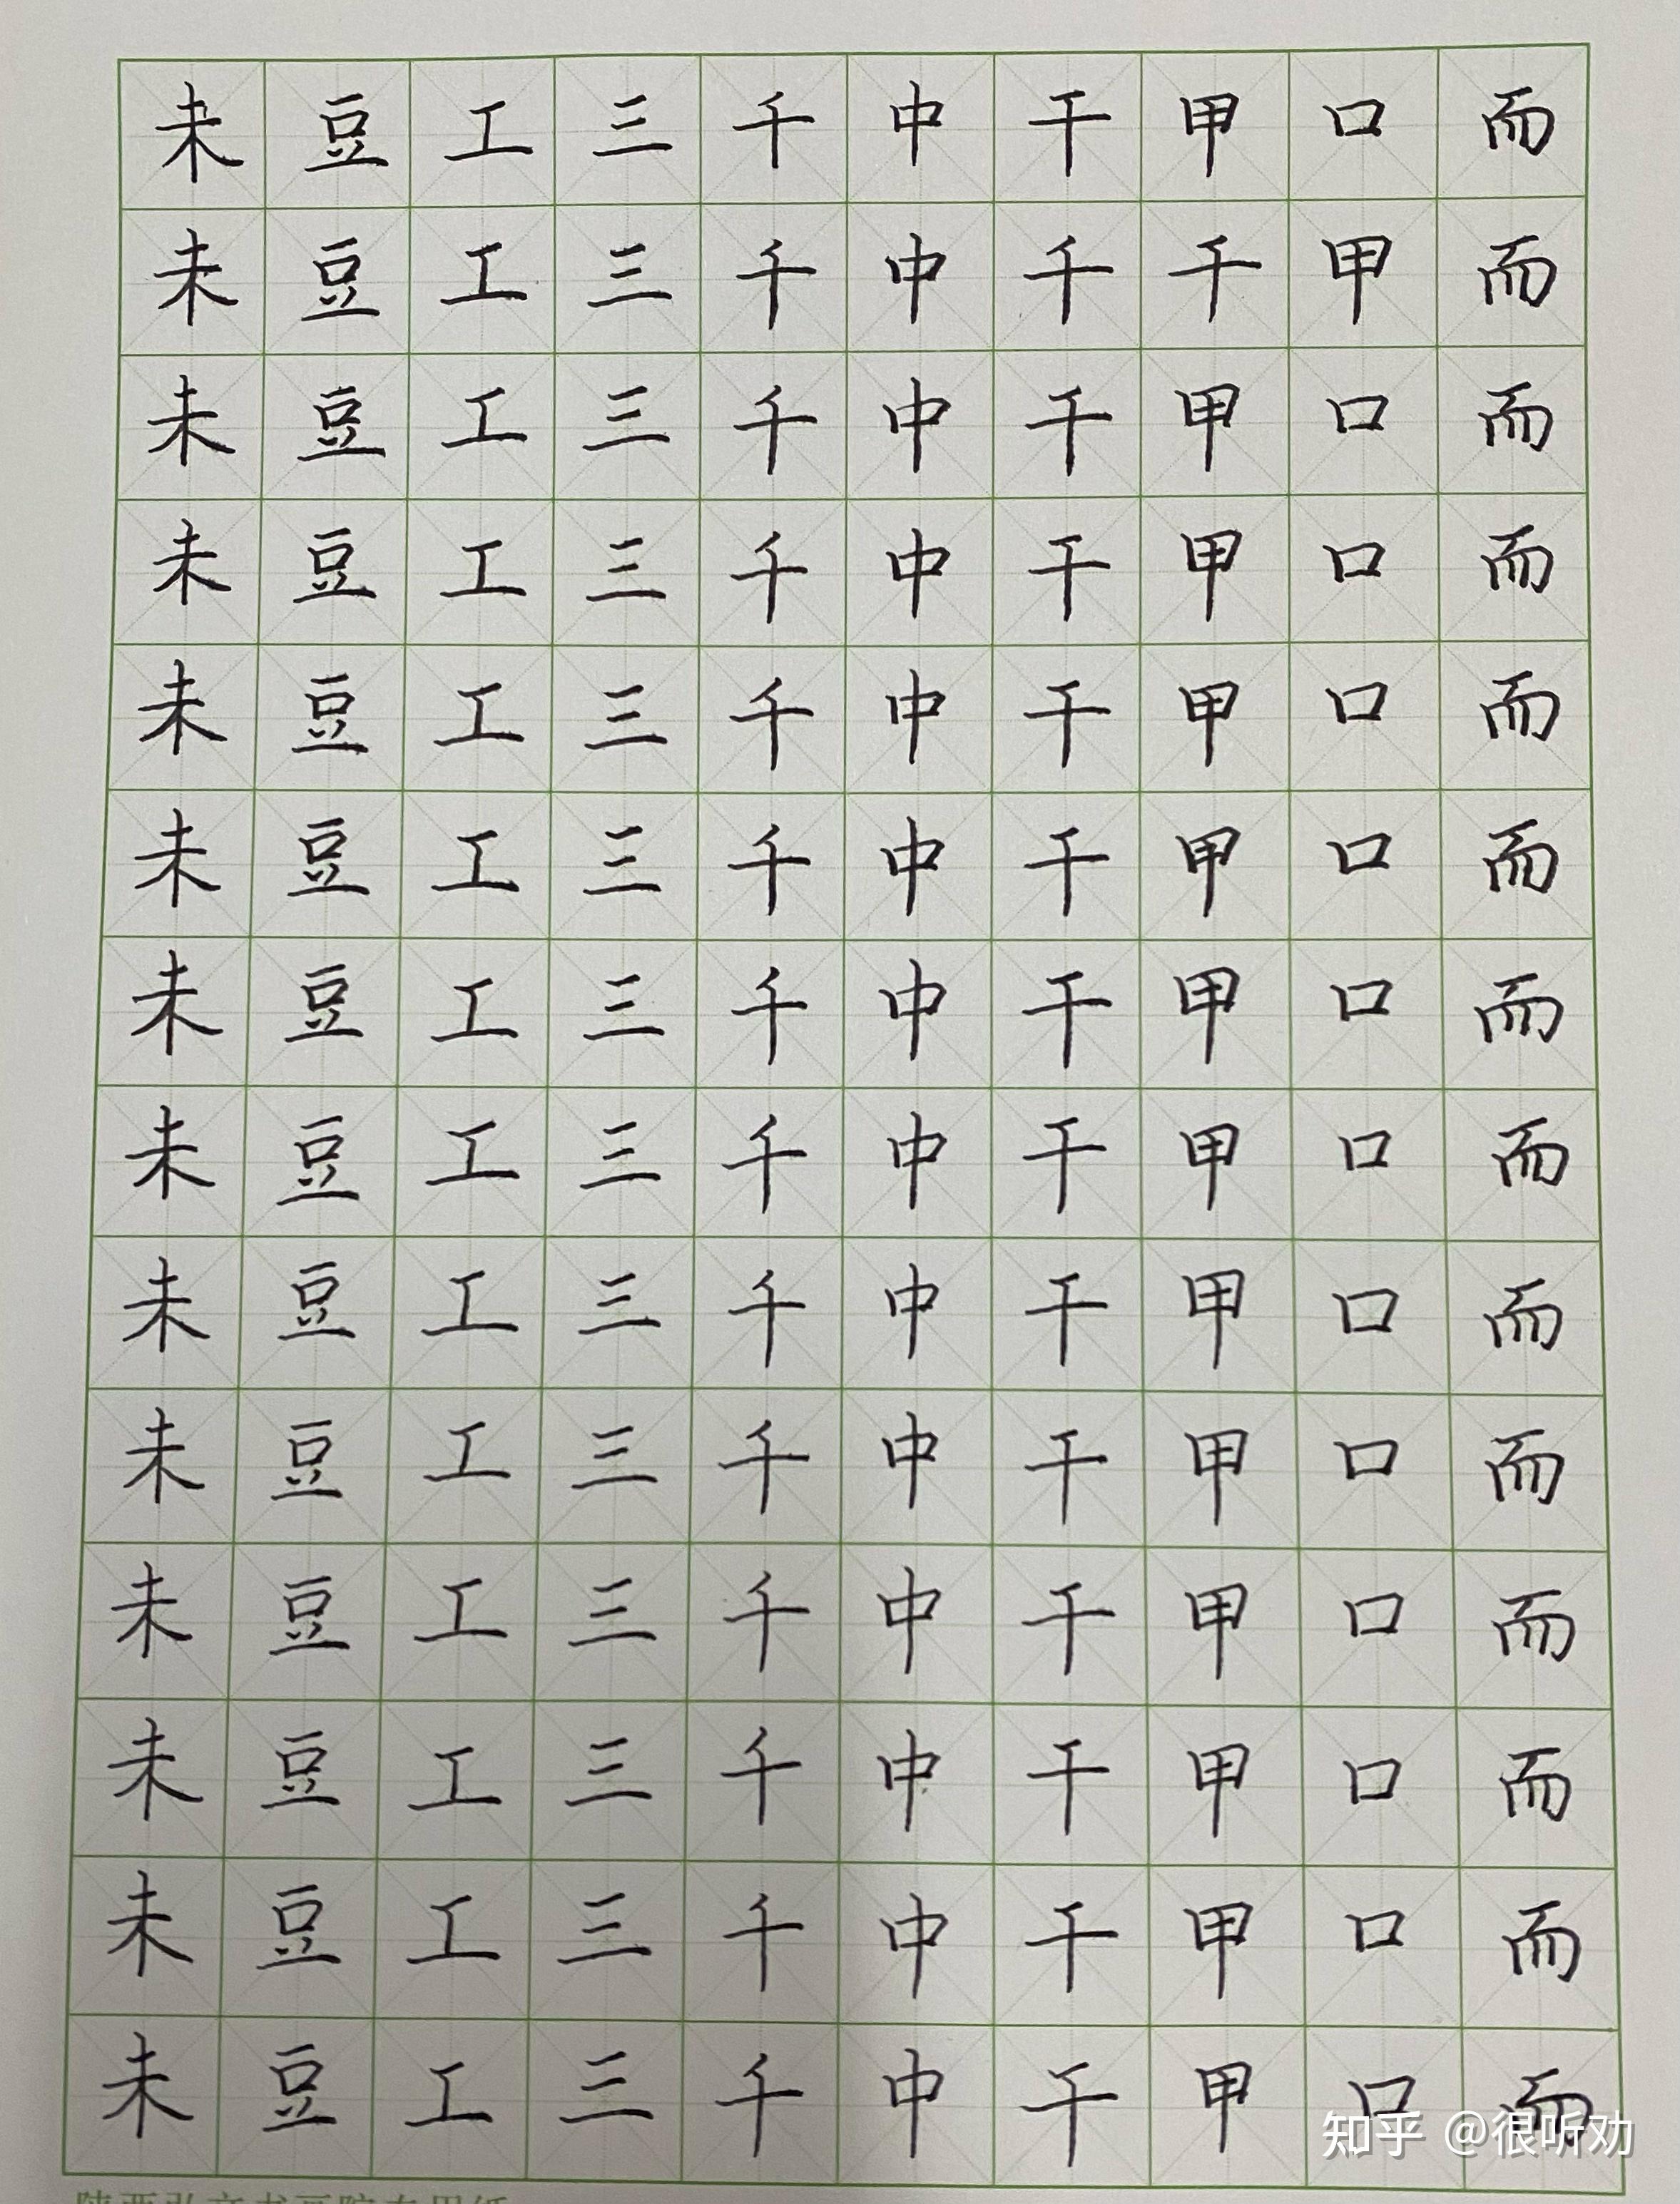 未豆工三千中干甲口而
未豆工三千中千千甲而
未豆工三千中干甲口而
未豆工三千中干甲口而
未豆工三千中干甲口而
未豆工三千中干甲口而
未豆工三千中干甲口而
未豆工三千中干甲口而
未豆工三千中干甲口而
未豆工三千中干甲口而
未豆工三千中干甲口而
未豆工三千中干甲口而
未豆工三千中干甲口而
未豆工三千中千甲口而
知乎 @很听劝